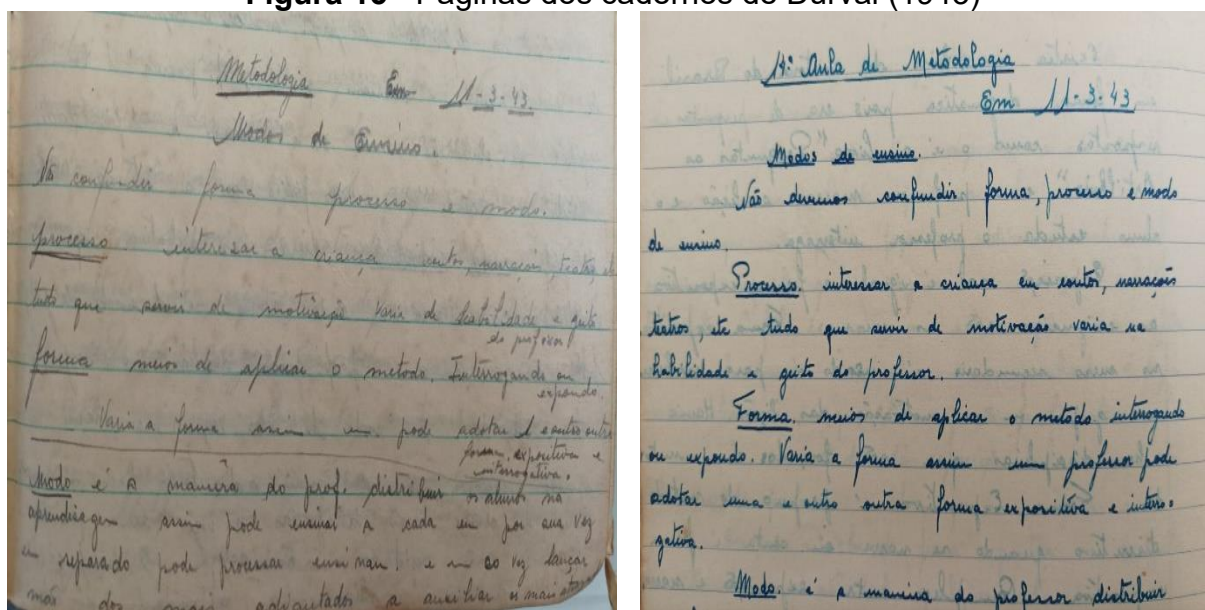 Figura 10 - Páginas dos cadernos de Durval (1943)
Metodologia Em 11-3-43.
Modos de Ensino.
Não confundir forma processo e modo.
processo interessar a criança contos, narração, teatro, etc
tudo que servir de motivação varia de habilidade e geito
do professor
forma meios de aplicar o metodo. Interrogando ou
expondo.
Varia a forma assim um pode adotar 1 e outro outra
forma, expositiva e
interrogativa.
Modo é a maneira do prof. distribuir os alunos na
aprendisagem assim pode ensinar a cada um por sua vez
em separado pode processar
mão dos mais adiantados a auxiliar
1ª: Aula de Metodologia
Em 11-3-43
Modos de ensino.
Não devemos confundir forma, processo e modo
de ensino.
Processo. interessar a criança em contos, narrações
teatros, etc tudo que servir de motivação varia na
habilidade e geito do professor.
Forma. meios de aplicar o metodo interrogando
ou expondo. Varia a forma assim um professor pode
adotar uma e outro outra forma expositiva e interro-
gativa.
Modo. é a maneira do professor distribuir